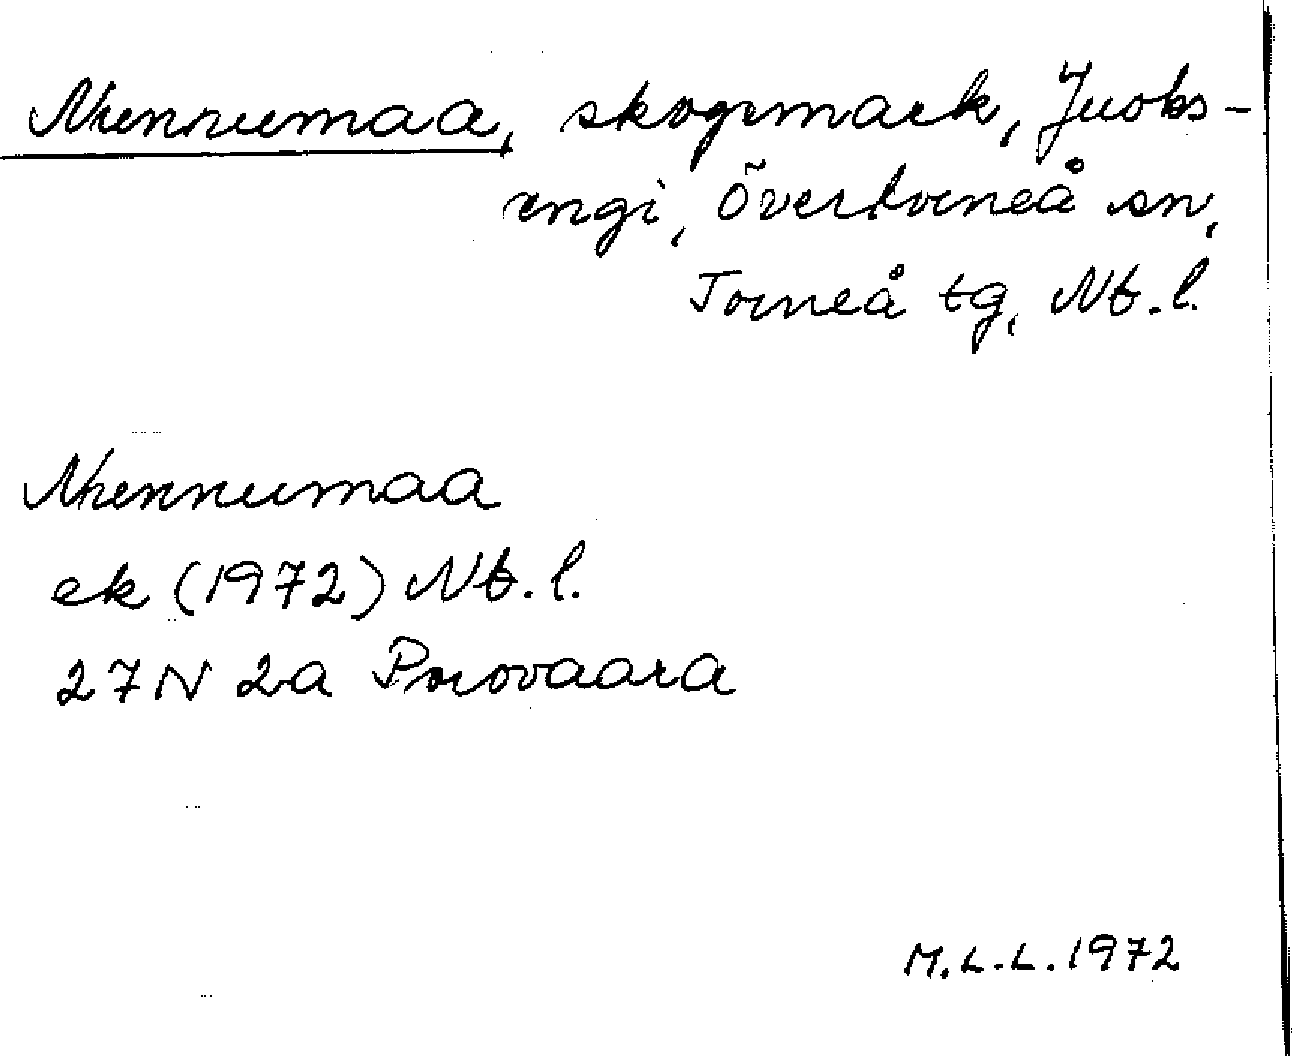 Niennumaa, skogsmark, Juoks-
engi, Övertorneå sn,
Torneå tg, Nb. l.
Niennumaa
ek (1972) Nb. l.
27N 2a Porovaara
M.L.L. 1972